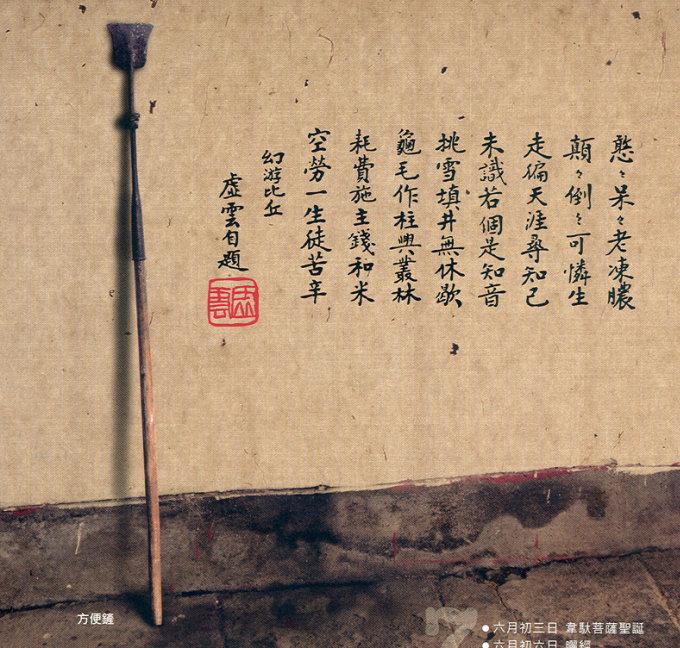 憨々呆々老凍膿
顛々倒々可憐生
走徧天涯尋知己
未識若個是知音
挑雪填井無休歇
龜毛作柱興叢林
耗費施主錢和米
空勞一生徒苦辛
幻游比丘
虛雲自題
虛雲
方便鏟
7
六月初三日 韋馱菩薩聖誕
六月初六日